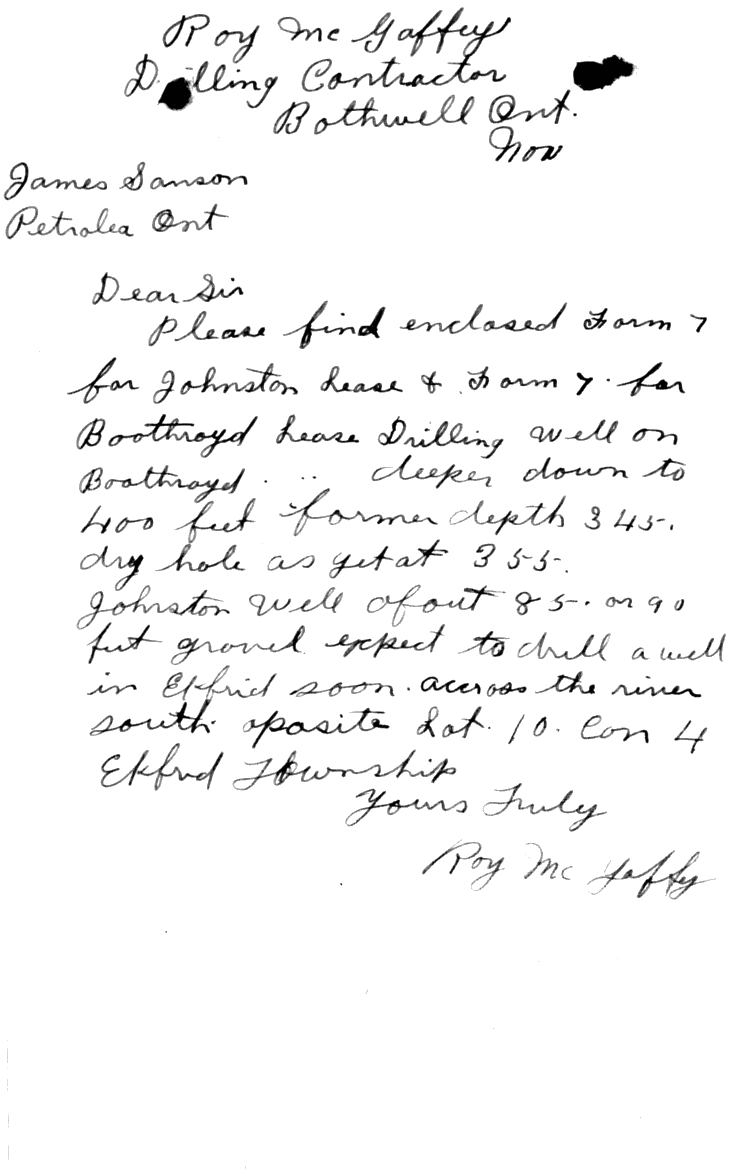 Roy Mc Gaffey
Drilling Contractor
Bothwell Ont.
Nov
James Sanson
Petrolea Ont
Dear Sir
Please find enclosed Form 7
for Johnston Lease & Form 7. for
Boothroyd Lease Drilling well on
Boothroyd . .. deeper down to
400 feet former depth 345.
dry hole as yet at 355.
Johnston Well about 85. or 90
feet gravel expect to drill a well
in Ekfrid soon. accross the river
south. oposite Lot. 10. Con 4
Ekfrid Township
Yours Truly
Roy Mc Gaffy